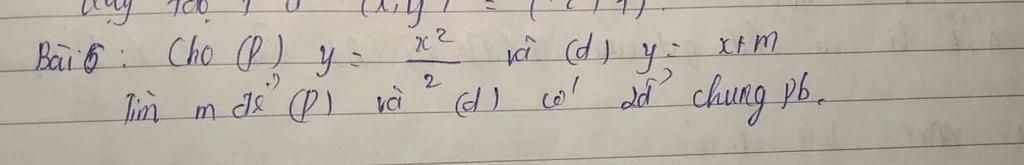 (x,y) =
Bài 5: Cho (P) y = x²/2 và (d) y = x+m
Tìm m để (P) và (d) có 2đ' chung pb.